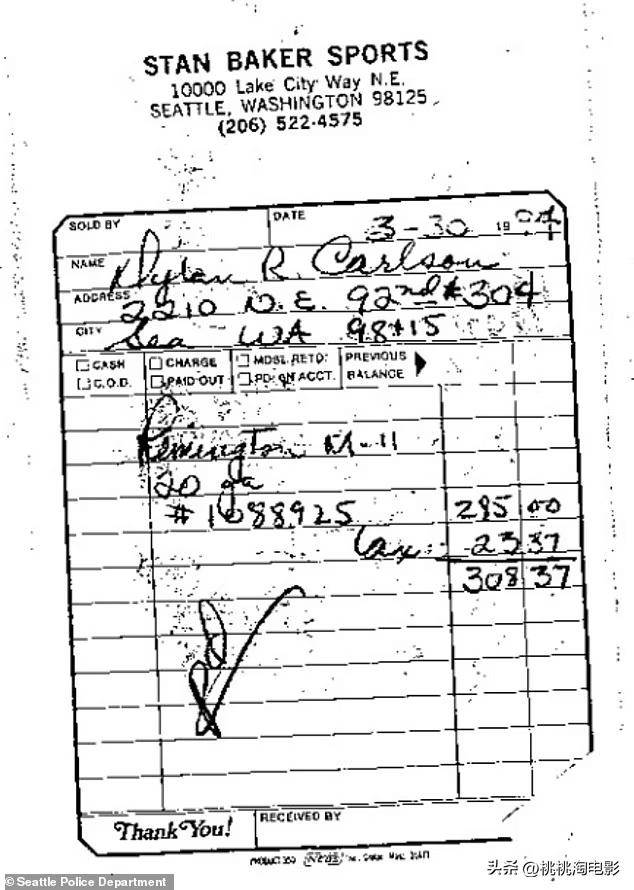 STAN BAKER SPORTS
10000 Lake City Way N.E.
SEATTLE, WASHINGTON 98125
(206) 522-4575
SOLD BY DATE 3-30 1994
NAME Dylan R. Carlson
ADDRESS 2210 N.E. 92nd #304
CITY Sea WA 98115
CASH CHARGE MDSE. RETD. PREVIOUS BALANCE
C.O.D. PAID OUT PD. ON ACCT.
Remington M-11
20 ga
#1088925 285 00
tax 23 37
308 37
Thank You! RECEIVED BY
PRODUCT 350
© Seattle Police Department
头条 @桃桃淘电影